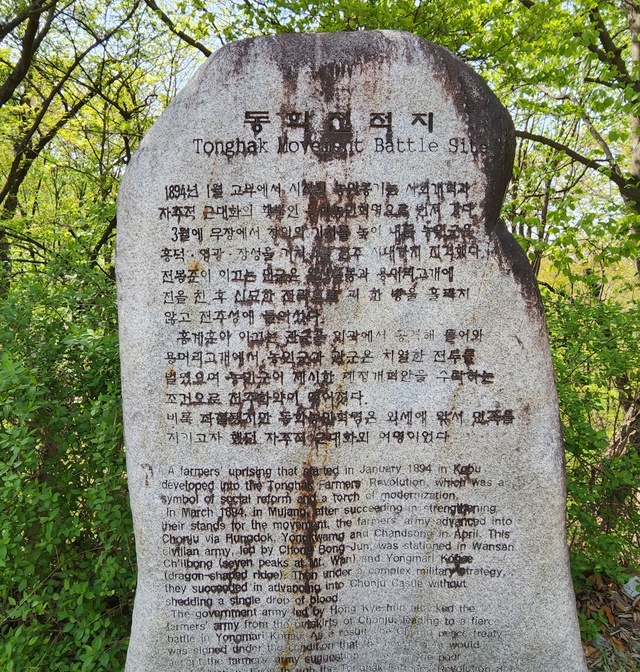 동학전적지
Tonghak Movement Battle Site
1894년 1월 고부에서 시작된 농민봉기는 사회개혁과
자주적 근대화의 횃불인 동학농민혁명으로 번져 갔다.
3월에 무장에서 창의의 기치를 높이 내건 농민군은
흥덕·영광·장성을 거쳐 4월 전주 시내까지 진격했다.
전봉준이 이끄는 민군은 완산칠봉과 용머리고개에
진을 친 후 신묘한 전략으로 피 한 방울 흘리지
않고 전주성에 들어섰다.
홍계훈이 이끄는 관군은 외곽에서 공격해 들어와
용머리고개에서 농민군과 관군은 치열한 전투를
벌였으며 농민군이 제시한 폐정개혁안을 수락하는
조건으로 전주화약이 맺어졌다.
비록 좌절됐지만 동학농민혁명은 외세에 맞서 민족을
지키고자 했던 자주적 근대화의 여명이었다.
A farmers' uprising that started in January 1894 in Kobu
developed into the Tonghak Farmers Revolution, which was a
symbol of social reform and a torch of modernization.
In March 1894, in Mujang, after succeeding in strengthening
their stands for the movement, the farmers' army advanced into
Chonju via Hungdok, Yongkwang and Chandsong in April. This
civilian army, led by Chong Bong-Jun, was stationed in Wansan
Ch'ilbong (seven peaks at Mt. Wan) and Yongmari Kogae
(dragon-shaped ridge). Then under a complex military strategy,
they succeeded in advancing into Chonju Castle without
shedding a single drop of blood.
The government army led by Hong Kye-hun attacked the
farmers' army from the outskirts of Chonju, leading to a fierce
battle in Yongmari Kogae. As a result, peace treaty
was signed under the condition that would
accept the farmers' army